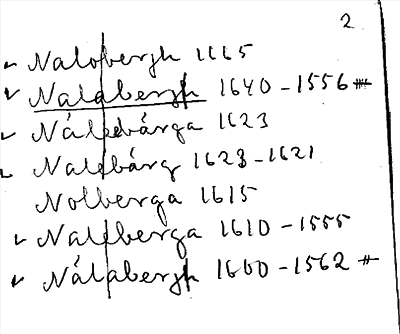 2
Nalobergh 1665
Nalabergh 1640-1556
Nálebárga 1623
Nalebárg 1623-1621
Nolberga 1615
Naleberga 1610-1555
Nálabergh 1600-1562